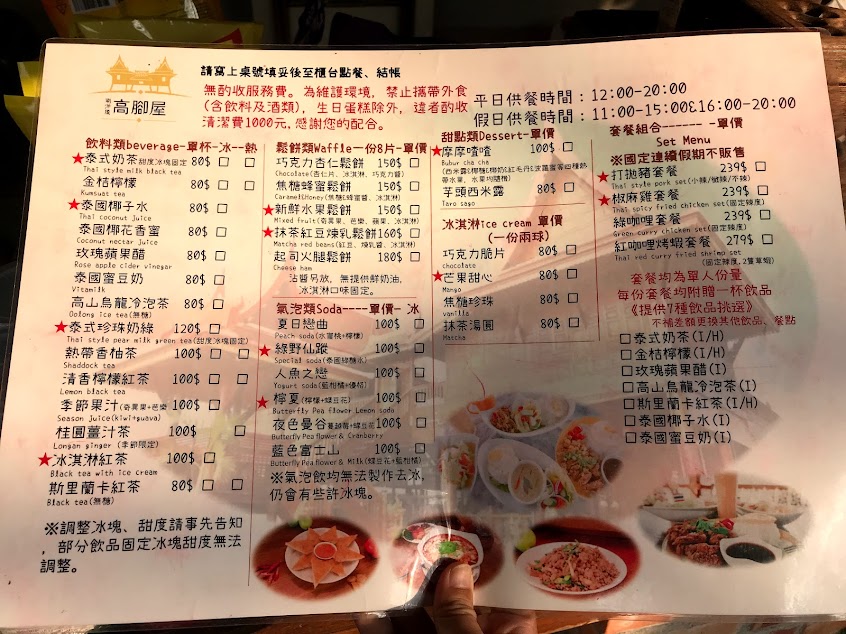 南洋風
高腳屋
請寫上桌號填妥後至櫃台點餐、結帳
無酌收服務費。為維護環境，禁止攜帶外食
(含飲料及酒類)，生日蛋糕除外，違者酌收
清潔費1000元,感謝您的配合。
平日供餐時間：12:00-20:00
假日供餐時間：11:00-15:00&16:00-20:00
飲料類beverage-單杯-冰-熱
★泰式奶茶甜度冰塊固定 80$ □ □
Thai style milk black tea
金桔檸檬 80$ □ □
Kumsuat tea
★泰國椰子水 80$ □
Thai coconut juice
泰國椰花香蜜 80$ □
Coconut nectar juice
玫瑰蘋果醋 80$ □
Rose apple cider vinegar
泰國蜜豆奶 80$ □
Vitamilk
高山烏龍冷泡茶 80$ □
Oolong ice tea(無糖)
★泰式珍珠奶綠 120$ □
Thai style pear milk green tea(甜度冰塊固定)
熱帶香柚茶 100$ □ □
Shaddock tea
清香檸檬紅茶 100$ □ □
Lemon black tea
季節果汁(奇異果+芭樂) 100$ □
Season juice(kiwi+guava)
桂圓薑汁茶 100$ □
Longan ginger (季節限定)
★冰淇淋紅茶 100$ □
Black tea with ice cream
斯里蘭卡紅茶 80$ □ □
Black tea(無糖)
※調整冰塊、甜度請事先告知
，部分飲品固定冰塊甜度無法
調整。
鬆餅類Waffle一份8片-單價
巧克力杏仁鬆餅 150$ □
Chocolate(杏仁片、冰淇淋、巧克力醬)
焦糖蜂蜜鬆餅 150$ □
Caramel&Honey(焦糖&蜂蜜醬、冰淇淋)
★新鮮水果鬆餅 150$ □
Mixed fruit(奇異果、芭樂、蘋果、冰淇淋)
★抹茶紅豆煉乳鬆餅160$ □
Matcha red beans(紅豆、煉乳醬、冰淇淋)
起司火腿鬆餅 180$ □
Cheese ham
沾醬另放，無提供鮮奶油,
冰淇淋口味固定。
氣泡類Soda----單價- 冰
夏日戀曲 100$ □
Peach soda(水蜜桃+檸檬)
★綠野仙蹤 100$ □
Special soda(泰國綠糖水)
人魚之戀 100$ □
Yogurt soda(藍柑橘+優格)
★檸夏(檸檬+蝶豆花) 100$ □
Butterfly Pea flower Lemon soda
夜色曼谷蔓越莓+蝶豆花 100$ □
Butterfly Pea flower & Cranberry
藍色富士山 100$ □
Butterfly Pea flower & Milk(蝶豆花+藍柑橘)
※氣泡飲均無法製作去冰,
仍會有些許冰塊。
甜點類Dessert-單價
★摩摩喳喳 100$ □
Bubur cha cha
(西米露&椰糖&椰奶&紅毛丹&波羅蜜等四種熱
帶水果，水果均隨機)
芋頭西米露 80$ □
Taro sago
冰淇淋ice cream 單價
(一份兩球)
巧克力脆片 80$ □
chocolate
★芒果甜心 80$ □
Mango
焦糖珍珠 80$ □
vanilla
抹茶湯圓 80$ □
Matcha
套餐組合------ -單價
Set Menu
※國定連續假期不販售
★打拋豬套餐 239$ □
Thai style pork set(小辣/微辣/不辣)
★椒麻雞套餐 239$ □
Thai spicy fried chicken set(固定辣度)
綠咖哩套餐 239$ □
Green curry chicken set(固定辣度)
紅咖哩烤蝦套餐 279$ □
Thai red curry fried shrimp set
(固定辣度,2隻草蝦)
套餐均為單人份量
每份套餐均附贈一杯飲品
《提供7種飲品挑選》
不補差額更換其他飲品、餐點
□泰式奶茶(I/H)
□金桔檸檬(I/H)
□玫瑰蘋果醋(I)
□高山烏龍冷泡茶(I)
□斯里蘭卡紅茶(I/H)
□泰國椰子水(I)
□泰國蜜豆奶(I)